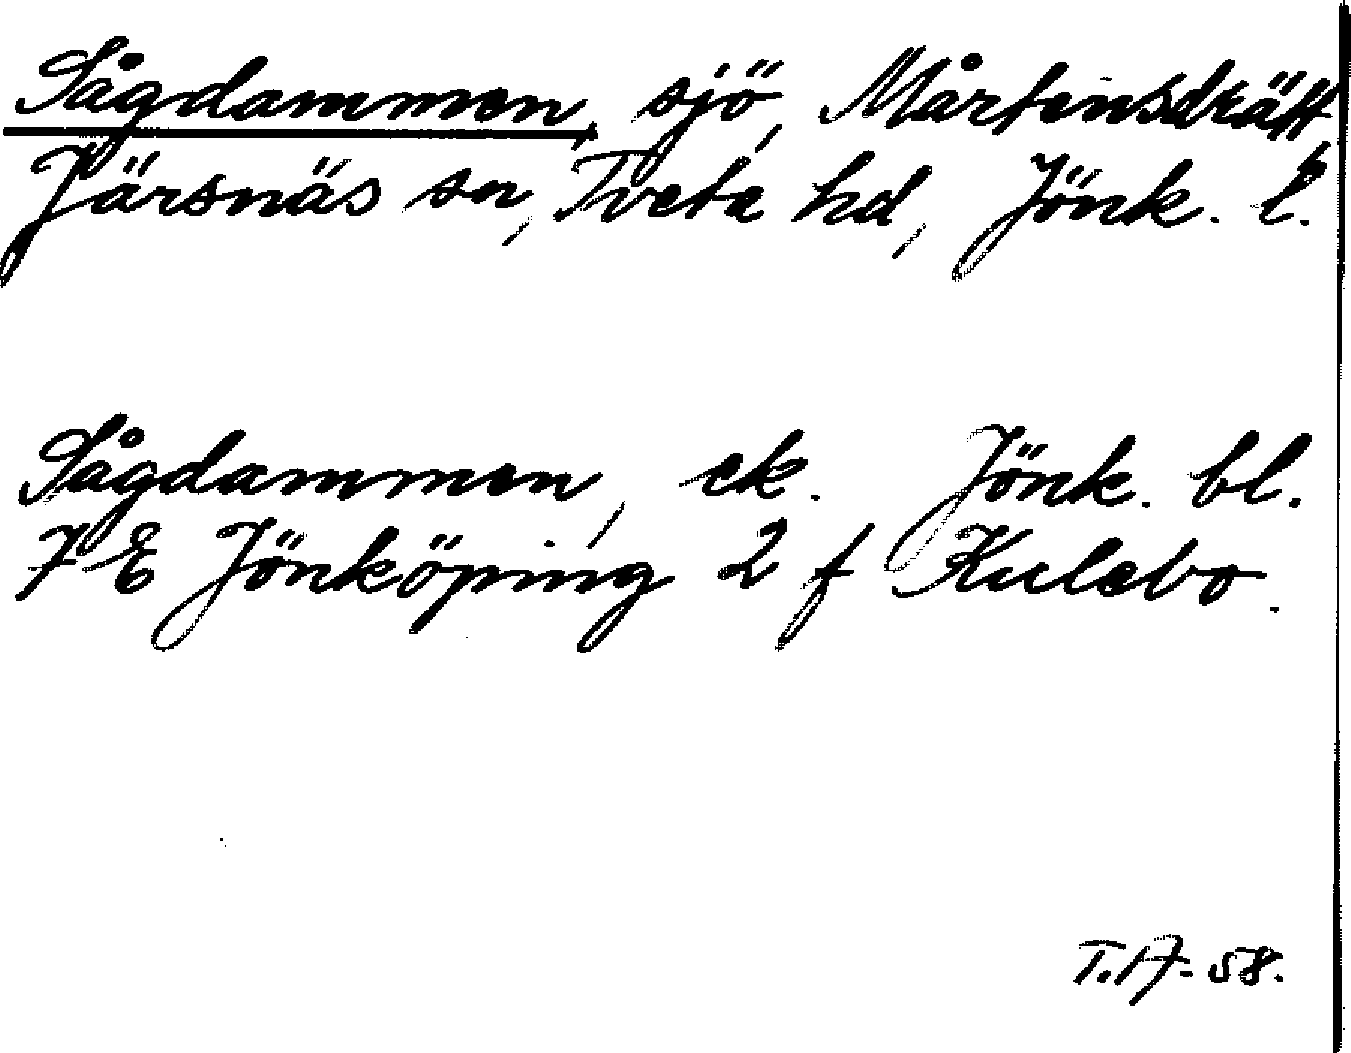 Sågdammen, sjö, Mårtensdrätt,
Järsnäs sn, Tveta hd, Jönk. l.
Sågdammen, ek. Jönk. bl.
7 E Jönköping 2 f Kulebo.
T.17-58.